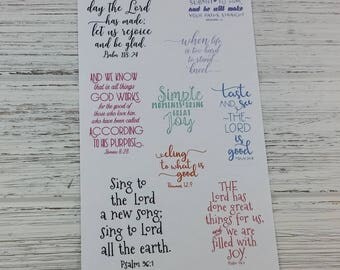 day the Lord
has made;
let us rejoice
and be glad.
Psalm 118:24
SUBMIT TO HIM
and he will make
YOUR PATHS STRAIGHT
when life
is too hard
to stand
kneel
AND WE KNOW
that in all things
GOD WORKS
for the good of
those who love him,
who have been called
ACCORDING
TO HIS PURPOSE.
Romans 8:28
Simple
MOMENTS BRING
GREAT
Joy
taste
and see
THE
LORD
is good
cling
to what is
good
Romans 12:9
Sing to
the Lord
a new song;
sing to Lord
all the earth.
Psalm 96:1
THE
Lord has
done great
things for us,
and we are
filled with
JOY.